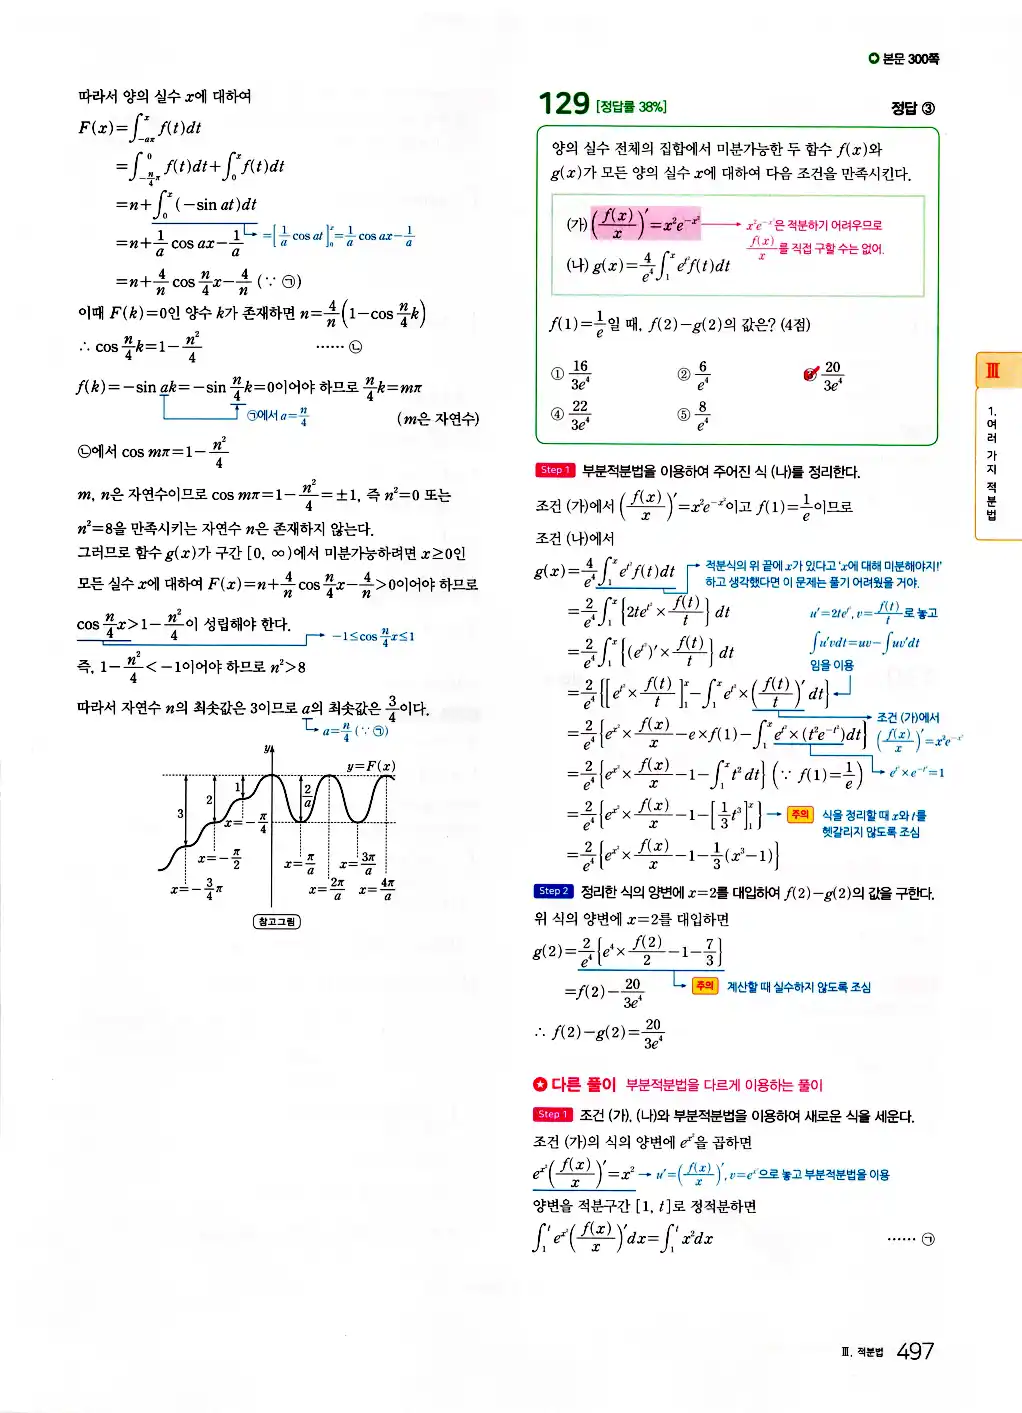 본문 300쪽
따라서 양의 실수 x에 대하여
F(x)=∫_{-aπ}^{x} f(t)dt
=∫_{-\frac{n}{4}π}^{0} f(t)dt+∫_0^x f(t)dt
=n+∫_0^x (-sin at)dt
=n+\frac{1}{a} cos ax-\frac{1}{a} =[\frac{1}{a} cos at]_0^x=\frac{1}{a} cos ax-\frac{1}{a}
=n+\frac{4}{n} cos \frac{n}{4}x-\frac{4}{n} (∵ ㉠)
이때 F(k)=0인 양수 k가 존재하면 n=\frac{4}{n}(1-cos \frac{n}{4}k)
∴ cos \frac{n}{4}k=1-\frac{n²}{4} ······ ㉡
f(k)=-sin ak=-sin \frac{n}{4}k=0이어야 하므로 \frac{n}{4}k=mπ
㉠에서 a=\frac{n}{4} (m은 자연수)
㉡에서 cos mπ=1-\frac{n²}{4}
m, n은 자연수이므로 cos mπ=1-\frac{n²}{4}=±1, 즉 n²=0 또는
n²=8을 만족시키는 자연수 n은 존재하지 않는다.
그러므로 함수 g(x)가 구간 [0, ∞)에서 미분가능하려면 x≥0인
모든 실수 x에 대하여 F(x)=n+\frac{4}{n} cos \frac{n}{4}x-\frac{4}{n}>0이어야 하므로
cos \frac{n}{4}x>1-\frac{n²}{4}이 성립해야 한다.
-1≤cos \frac{n}{4}x≤1
즉, 1-\frac{n²}{4}<-1이어야 하므로 n²>8
따라서 자연수 n의 최솟값은 3이므로 a의 최솟값은 \frac{3}{4}이다.
a=\frac{n}{4} (∵ ㉠)
y
y=F(x)
3
2
1
\frac{2}{a}
x=-\frac{π}{4}
x=-\frac{π}{2}
x=\frac{π}{a}
x=\frac{3π}{a}
x=-\frac{3}{4}π
x=\frac{2π}{a}
x=\frac{4π}{a}
참고그림
129 [정답률 38%] 정답 ③
양의 실수 전체의 집합에서 미분가능한 두 함수 f(x)와
g(x)가 모든 양의 실수 x에 대하여 다음 조건을 만족시킨다.
(가) (\frac{f(x)}{x})′=x²e^{-x²} → x²e^{-x²}은 적분하기 어려우므로
\frac{f(x)}{x}를 직접 구할 수는 없어.
(나) g(x)=\frac{4}{e⁴}∫_1^x e^{t²}f(t)dt
f(1)=\frac{1}{e}일 때, f(2)-g(2)의 값은? (4점)
① \frac{16}{3e⁴} ② \frac{6}{e⁴} ③ \frac{20}{3e⁴}
④ \frac{22}{3e⁴} ⑤ \frac{8}{e⁴}
Step 1 부분적분법을 이용하여 주어진 식 (나)를 정리한다.
조건 (가)에서 (\frac{f(x)}{x})′=x²e^{-x²}이고 f(1)=\frac{1}{e}이므로
조건 (나)에서
g(x)=\frac{4}{e⁴}∫_1^x e^{t²}f(t)dt
적분식의 위 끝에 x가 있다고 'x에 대해 미분해야지!'
하고 생각했다면 이 문제는 풀기 어려웠을 거야.
=\frac{2}{e⁴}∫_1^x {2te^{t²}×\frac{f(t)}{t}} dt
u′=2te^{t²}, v=\frac{f(t)}{t}로 놓고
=\frac{2}{e⁴}∫_1^x {(e^{t²})′×\frac{f(t)}{t}} dt
∫u′vdt=uv-∫uv′dt
임을 이용
=\frac{2}{e⁴}{[e^{t²}×\frac{f(t)}{t}]_1^x-∫_1^x e^{t²}×(\frac{f(t)}{t})′dt}
=\frac{2}{e⁴}{e^{x²}×\frac{f(x)}{x}-e×f(1)-∫_1^x e^{t²}×(t²e^{-t²})dt}
조건 (가)에서
(\frac{f(x)}{x})′=x²e^{-x²}
=\frac{2}{e⁴}{e^{x²}×\frac{f(x)}{x}-1-∫_1^x t²dt} (∵ f(1)=\frac{1}{e})
e^{t²}×e^{-t²}=1
=\frac{2}{e⁴}{e^{x²}×\frac{f(x)}{x}-1-[\frac{1}{3}t³]_1^x} → 주의 식을 정리할 때 x와 t를
헷갈리지 않도록 조심
=\frac{2}{e⁴}{e^{x²}×\frac{f(x)}{x}-1-\frac{1}{3}(x³-1)}
Step 2 정리한 식의 양변에 x=2를 대입하여 f(2)-g(2)의 값을 구한다.
위 식의 양변에 x=2를 대입하면
g(2)=\frac{2}{e⁴}{e⁴×\frac{f(2)}{2}-1-\frac{7}{3}}
=f(2)-\frac{20}{3e⁴} 주의 계산할 때 실수하지 않도록 조심
∴ f(2)-g(2)=\frac{20}{3e⁴}
다른 풀이 부분적분법을 다르게 이용하는 풀이
Step 1 조건 (가), (나)와 부분적분법을 이용하여 새로운 식을 세운다.
조건 (가)의 식의 양변에 e^{x²}을 곱하면
e^{x²}(\frac{f(x)}{x})′=x² → u′=(\frac{f(x)}{x})′, v=e^{x²}으로 놓고 부분적분법을 이용
양변을 적분구간 [1, t]로 정적분하면
∫_1^t e^{x²}(\frac{f(x)}{x})′dx=∫_1^t x²dx ······ ㉠
Ⅲ
1. 여러 가지 적분법
Ⅲ. 적분법 497